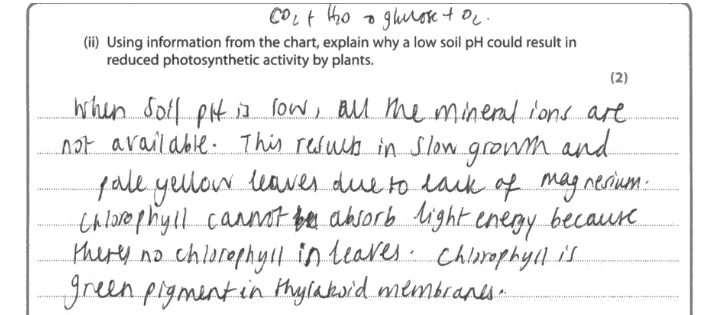 CO2 + H2O → glucose + O2.
(ii) Using information from the chart, explain why a low soil pH could result in
reduced photosynthetic activity by plants.
(2)
When soil pH is low, all the mineral ions are
not available. This results in slow growth and
pale yellow leaves due to lack of magnesium.
Chlorophyll cannot absorb light energy because
theres no chlorophyll in leaves. Chlorophyll is
green pigment in thylakoid membranes.